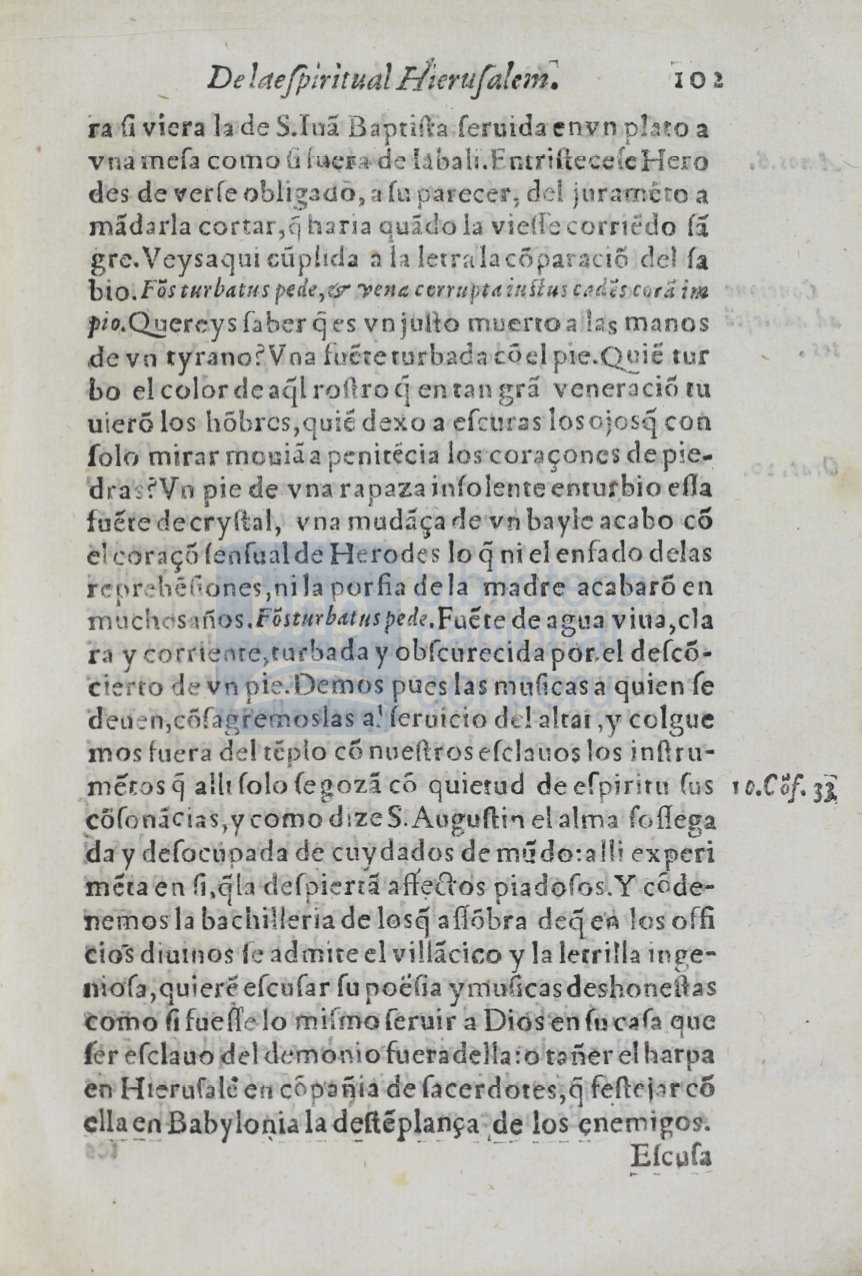 De la espiritual Hierusalem. 102
ra ſi viera la de S.Iuã Baptiſta ſeruida en vn plato a
vna meſa como ſi fuera de Iabali.Entriſteceſe Hero
des de verſe obligado, a ſu parecer, del juramẽto a
mãdarla cortar,q̃ haria quãdo la vieſſe corriẽdo ſã
gre.Veys aqui cũplida a la letra la cõparaciõ del ſa
bio.Fõs turbatus pede,& vena corrupta iuſtus cadẽs corã im
pio.Quereys ſaber q̃ es vn juſto muerto a las manos
de vn tyrano?Vna fuẽte turbada cõ el pie.Quiẽ tur
bo el color de aq̃l roſtro q̃ en tan grã veneraciõ tu
uierõ los hõbres,quiẽ dexo a eſcuras los ojos q̃ con
ſolo mirar mouiã a penitẽcia los coraçones de pie-
dras?Vn pie de vna rapaza inſolente enturbio eſſa
fuẽte de cryſtal, vna mudãça de vn bayle acabo cõ
el coraçõ ſenſual de Herodes lo q̃ ni el enfado delas
reprehẽſiones,ni la porfia de la madre acabarõ en
muchos años.Fõs turbatus pede.Fuẽte de agua viua,cla
ra y corriente,turbada y obſcurecida por el deſcõ-
cierto de vn pie.Demos pues las muſicas a quien ſe
deuen,cõſagremoslas al ſeruicio del altar,y colgue
mos fuera del tẽplo cõ nueſtros eſclauos los inſtru-
mẽtos q̃ alli ſolo ſe gozã cõ quietud de eſpiritu ſus
10.Cõf. 33
cõſonãcias,y como dize S.Auguſtin el alma ſoſſega
da y deſocupada de cuydados de mũdo:alli experi
mẽta en ſi,q̃ la deſpiertã affectos piadoſos.Y cõde-
nemos la bachilleria de los q̃ aſſõbra de q̃ en los offi
cios diuinos ſe admite el villãcico y la letrilla inge-
nioſa,quierẽ eſcuſar ſu poëſia y muſicas deshoneſtas
como ſi fueſſe lo miſmo ſeruir a Dios en ſu caſa que
ſer eſclauo del demonio fuera della:o tañer el harpa
en Hieruſalẽ en cõpañia de ſacerdotes,q̃ feſtejar cõ
ella en Babylonia la deſtẽplança de los enemigos.
Eſcuſa